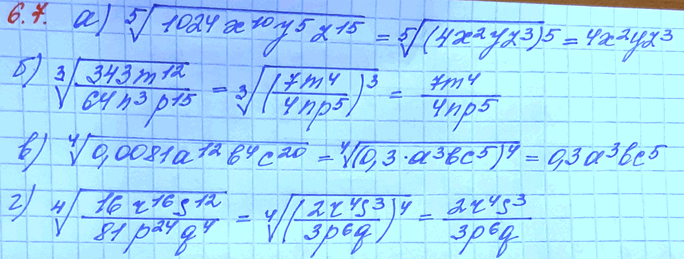 6.7. а) ⁵√(1024x¹⁰y⁵z¹⁵) = ⁵√((4x²yz³)⁵) = 4x²yz³
б) ³√(343m¹²/(64n³p¹⁵)) = ³√((7m⁴/(4np⁵))³) = 7m⁴/(4np⁵)
в) ⁴√(0,0081a¹²b⁴c²⁰) = ⁴√((0,3·a³bc⁵)⁴) = 0,3a³bc⁵
г) ⁴√(16r¹⁶s¹²/(81p²⁴q⁴)) = ⁴√((2r⁴s³/(3p⁶q))⁴) = 2r⁴s³/(3p⁶q)